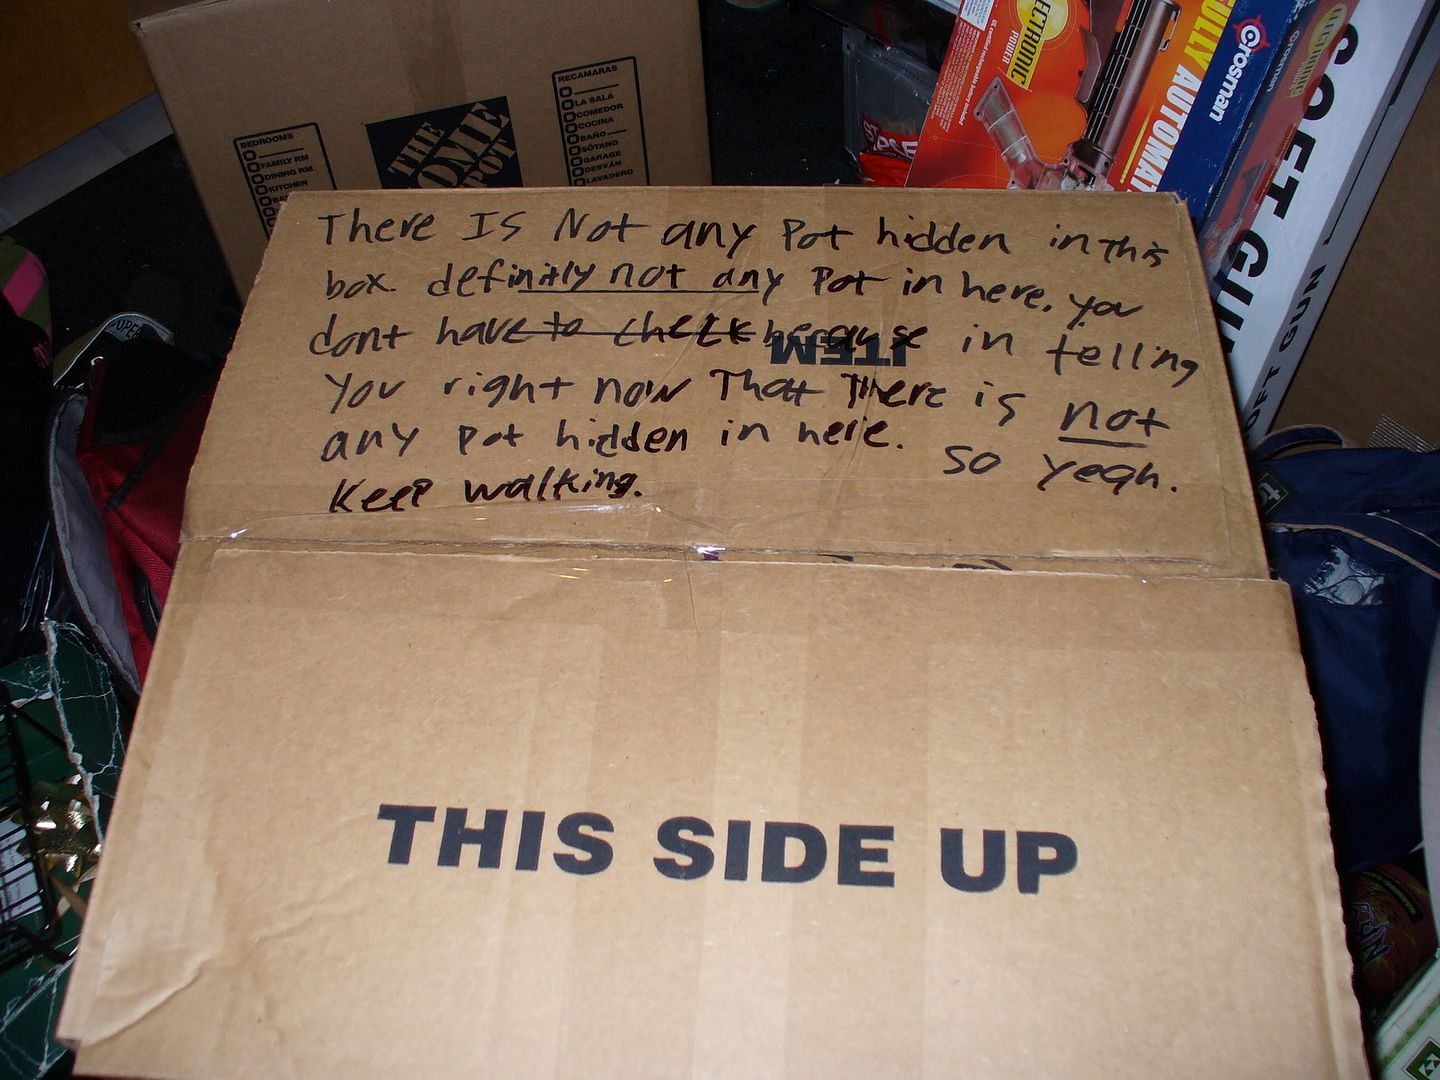 BEDROOMS
FAMILY RM
DINING RM
KITCHEN
THE
HOME
DEPOT
RECAMARAS
LA SALA
COMEDOR
COCINA
BAÑO
SÓTANO
GARAGE
DESVÁN
LAVADERO
ELECTRONIC
POWER
FULLY AUTOMAT
Crosman
Crosman
SOFT GUN
SOFT GUN
There IS Not any Pot hidden in This
box. definitly not any Pot in here. you
dont have to check because in telling
You right now That There is not
any Pot hidden in here. so yeah.
Keep walking.
ITEM
THIS SIDE UP